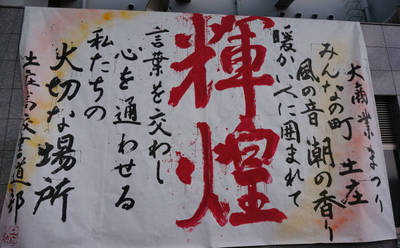 大商業まつり
みんなの町 土庄
風の音 潮の香り
暖かい人に囲まれて
輝煌
言葉を交わし
心を通わせる
私たちの
大切な場所
土庄高校書道部